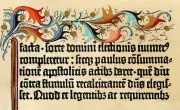 facta · sorte domini electionis numerꝰ
compleretur : sicq̄ paulus cōsumma-
tionē apostolicis actibꝫ daret · quē diu
cōtra stimulū recalcitrātē dn̄s elegis-
set. Quod et legentibꝫ ac requirentibꝫ